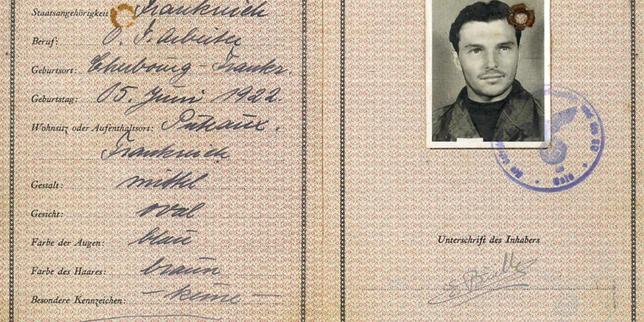 Staatsangehörigkeit Frankreich
Beruf: O. T. Arbeiter
Geburtsort: Cherbourg - Frankr.
Geburtstag: 05. Juni 1922.
Wohnsitz oder Aufenthaltsort: Puteaux.
Frankreich
Gestalt: mittel
Gesicht: oval
Farbe der Augen: blau
Farbe des Haares: braun
Besondere Kennzeichen: - keine -
Oslo
Unterschrift des Inhabers